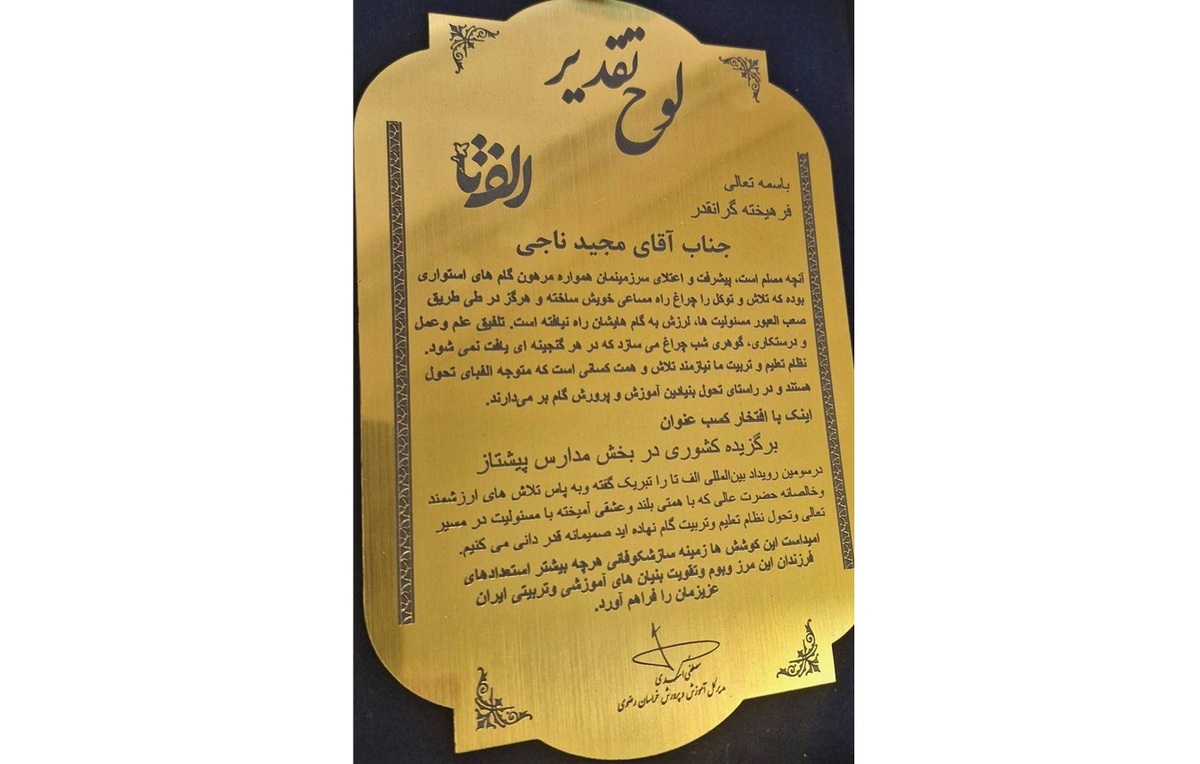 لوح تقدیر
الف تا
باسمه تعالی
فرهیخته گرانقدر
جناب آقای مجید ناجی
آنچه مسلم است، پیشرفت و اعتلای سرزمینمان همواره مرهون گام های استواری
بوده که تلاش و توکل را چراغ راه مساعی خویش ساخته و هرگز در طی طریق
صعب العبور مسئولیت ها، لرزش به گام هایشان راه نیافته است. تلفیق علم وعمل
و درستکاری، گوهری شب چراغ می سازد که در هر گنجینه ای یافت نمی شود.
نظام تعلیم و تربیت ما نیازمند تلاش و همت کسانی است که متوجه الفبای تحول
هستند و در راستای تحول بنیادین آموزش و پرورش گام بر می‌دارند.
اینک با افتخار کسب عنوان
برگزیده کشوری در بخش مدارس پیشتاز
درسومین رویداد بین‌المللی الف تا را تبریک گفته وبه پاس تلاش های ارزشمند
وخالصانه حضرت عالی که با همتی بلند وعشقی آمیخته با مسئولیت در مسیر
تعالی وتحول نظام تعلیم وتربیت گام نهاده اید صمیمانه قدر دانی می کنیم.
امیداست این کوشش ها زمینه سازشکوفائی هرچه بیشتر استعدادهای
فرزندان این مرز وبوم وتقویت بنیان های آموزشی وتربیتی ایران
عزیزمان را فراهم آورد.
مدیرکل آموزش و پرورش خراسان رضوی